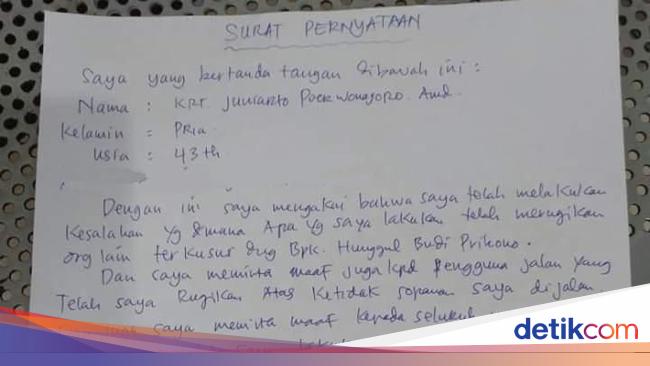 SURAT PERNYATAAN
Saya yang bertanda tangan dibawah ini :
Nama : KRT. Juniarto Poerwonagoro. Amd.
Kelamin : PRia
Usia : 43 th
Dengan ini saya mengakui bahwa saya telah melakukan
Kesalahan Yg dimana Apa Yg saya lakukan telah merugikan
org lain terkusus dng Bpk. Hunggul Budi Prihono.
Dan saya meminta maaf juga kpd Pengguna jalan yang
Telah saya Rugikan Atas Ketidak sopanan saya dijalan.
saya meminta maaf kepada seluruh
detikcom